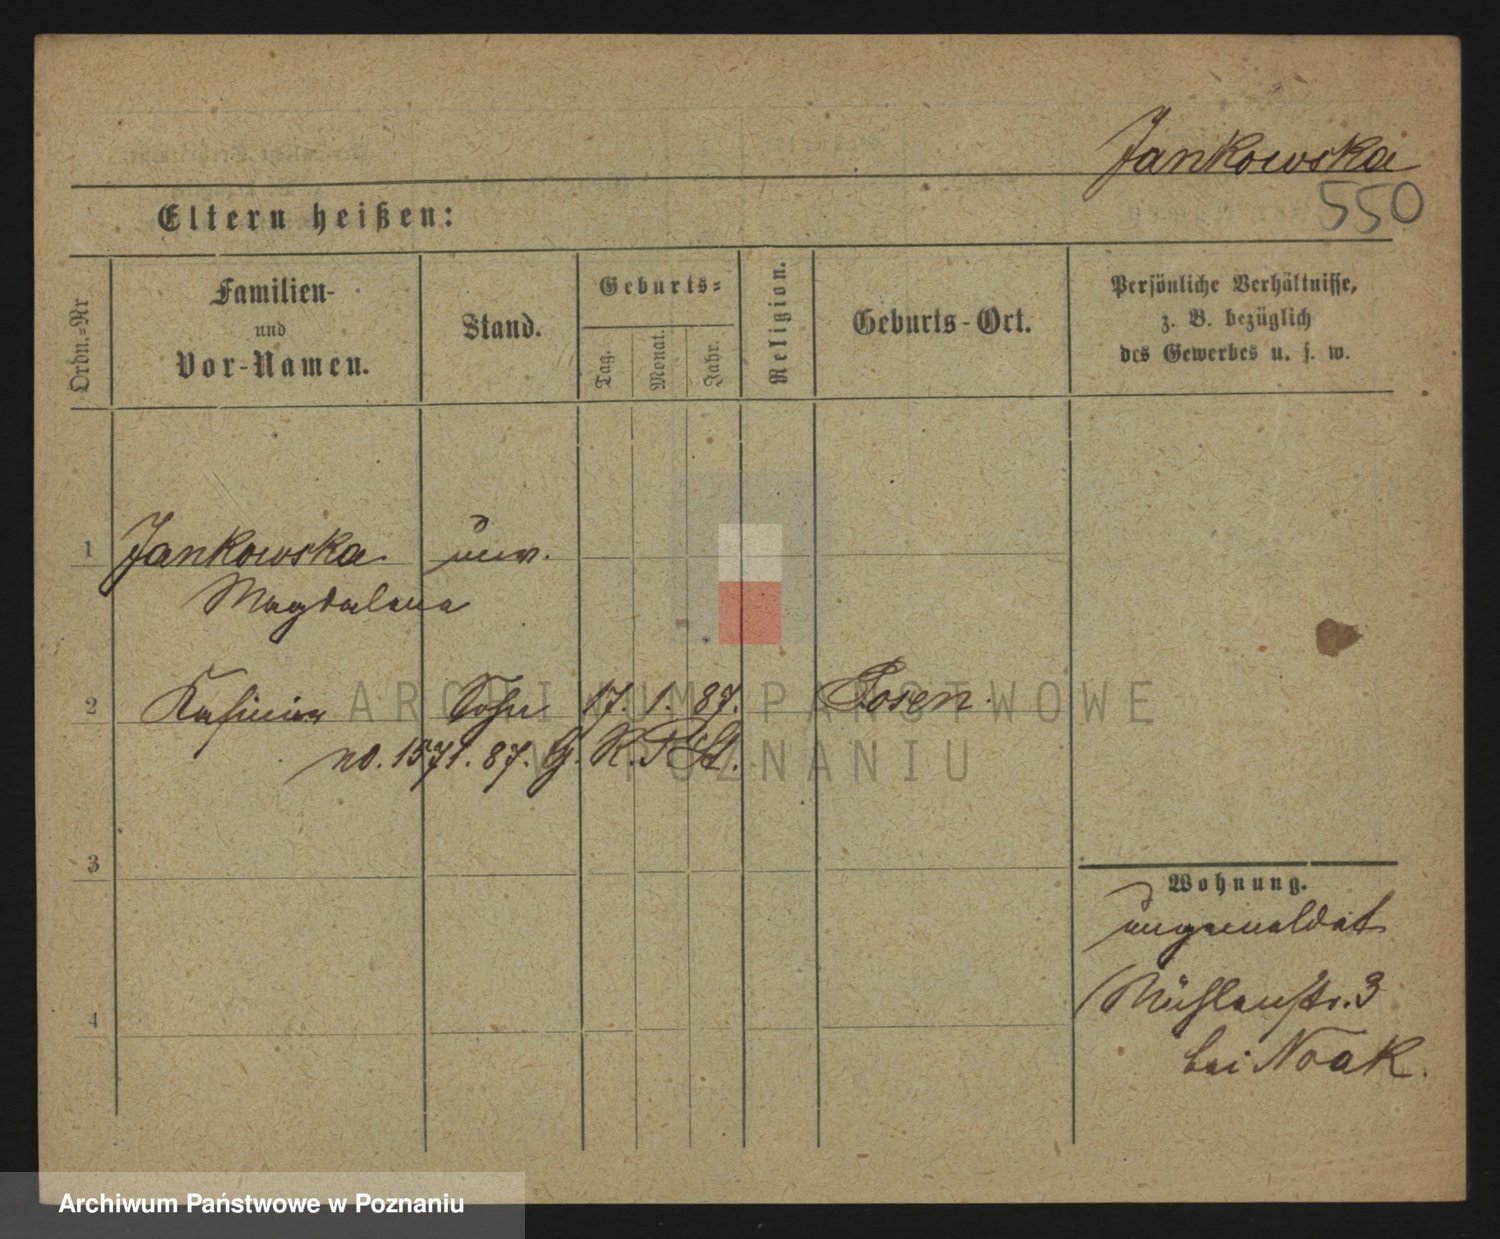 Jankowska
550
Eltern heißen:
Ordn.-Nr
Familien-
und
Vor-Namen.
Stand.
Geburts-
Tag.
Monat.
Jahr.
Religion.
Geburts-Ort.
Persönliche Verhältnisse,
z. B. bezüglich
des Gewerbes u. s. w.
1 Jankowska unv.
Magdalena
2 Kasimir Sohn 17. 1. 87. Posen.
no. 1571. 87. G. K. P. St.
3
Wohnung.
ungemeldet
Mühlenstr. 3
bei Noak.
4
ARCHIWUM PAŃSTWOWE
W POZNANIU
Archiwum Państwowe w Poznaniu